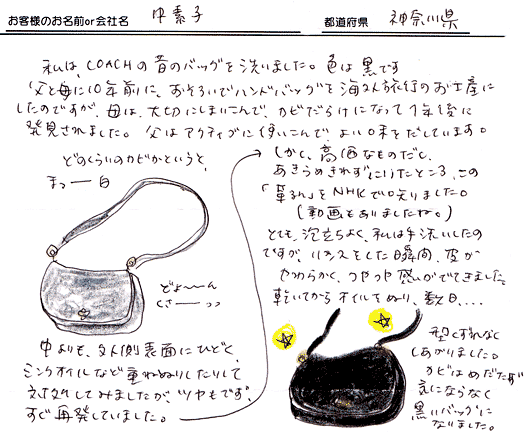 お客様のお名前or会社名 中素子 都道府県 神奈川県
私は、COACHの昔のバッグを洗いました。色は黒です
父と母に10年前に、おそろいでハンドバッグを海外旅行のお土産に
したのですが、母は、大切にしまいこんで、カビだらけになって7年後に
発見されました。父はアクティブに使いこんで、よい味をだしています。
どのくらいのカビかというと、
まっ一白
どよ〜〜ん
くさ〜っっ
中よりも、外側表面にひどく、
ミンクオイルなど重ねぬりしたりして
対処してみましたが、ツヤもでず、
すぐ再発していました。
しかし、高価なものだし、
あきらめきれずにいたところ、この
「革るん」をNHKで知りました。
(動画もありましたね。)
とても、泡立ちよく、私は手洗いしたの
ですが、リンスをした瞬間、皮が
やわらかく、つやつや感がでてきました。
乾いてからオイルをぬり、数日、...
型くずれなく
しあがりました。
カビはめだたず
気にならなく
黒いバッグに
なりました。